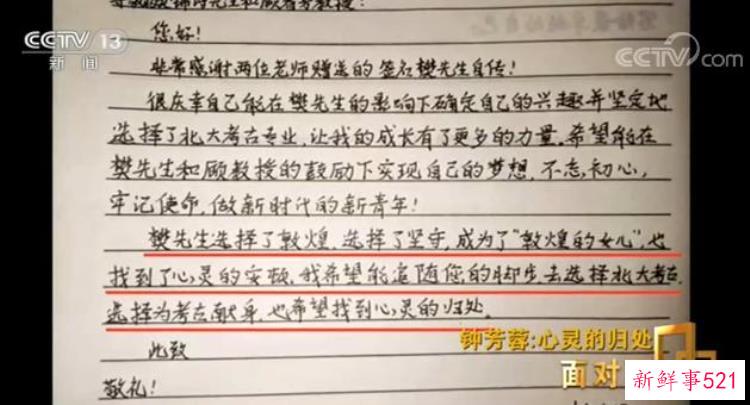 CCTV 13
新闻
CCTV.com
先生和顾春芳教授：
您好！
非常感谢两位老师赠送的签名樊先生自传！
很庆幸自己能在樊先生的影响下确定自己的兴趣并坚定地
选择了北大考古专业，让我的成长有了更多的力量。希望能在
樊先生和顾教授的鼓励下实现自己的梦想，不忘初心，
牢记使命，做新时代的新青年！
樊先生选择了敦煌，选择了坚守，成为了“敦煌的女儿”，也
找到了心灵的安顿。我希望能追随您的脚步去选择北大考古，
选择为考古献身，也希望找到心灵的归处。
此致
敬礼！
钟芳蓉:心灵的归处
面对
新鲜事521